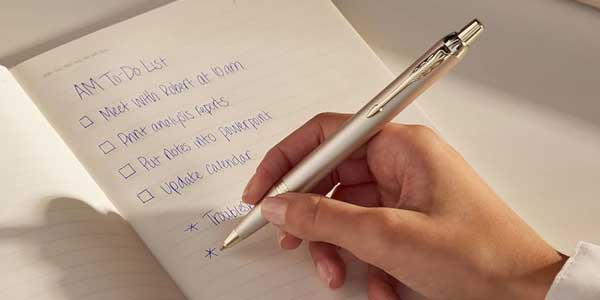 AM To-Do List
Meet with Robert at 10am
Print analysis reports
Put notes into powerpoint
Update calendar
*
*